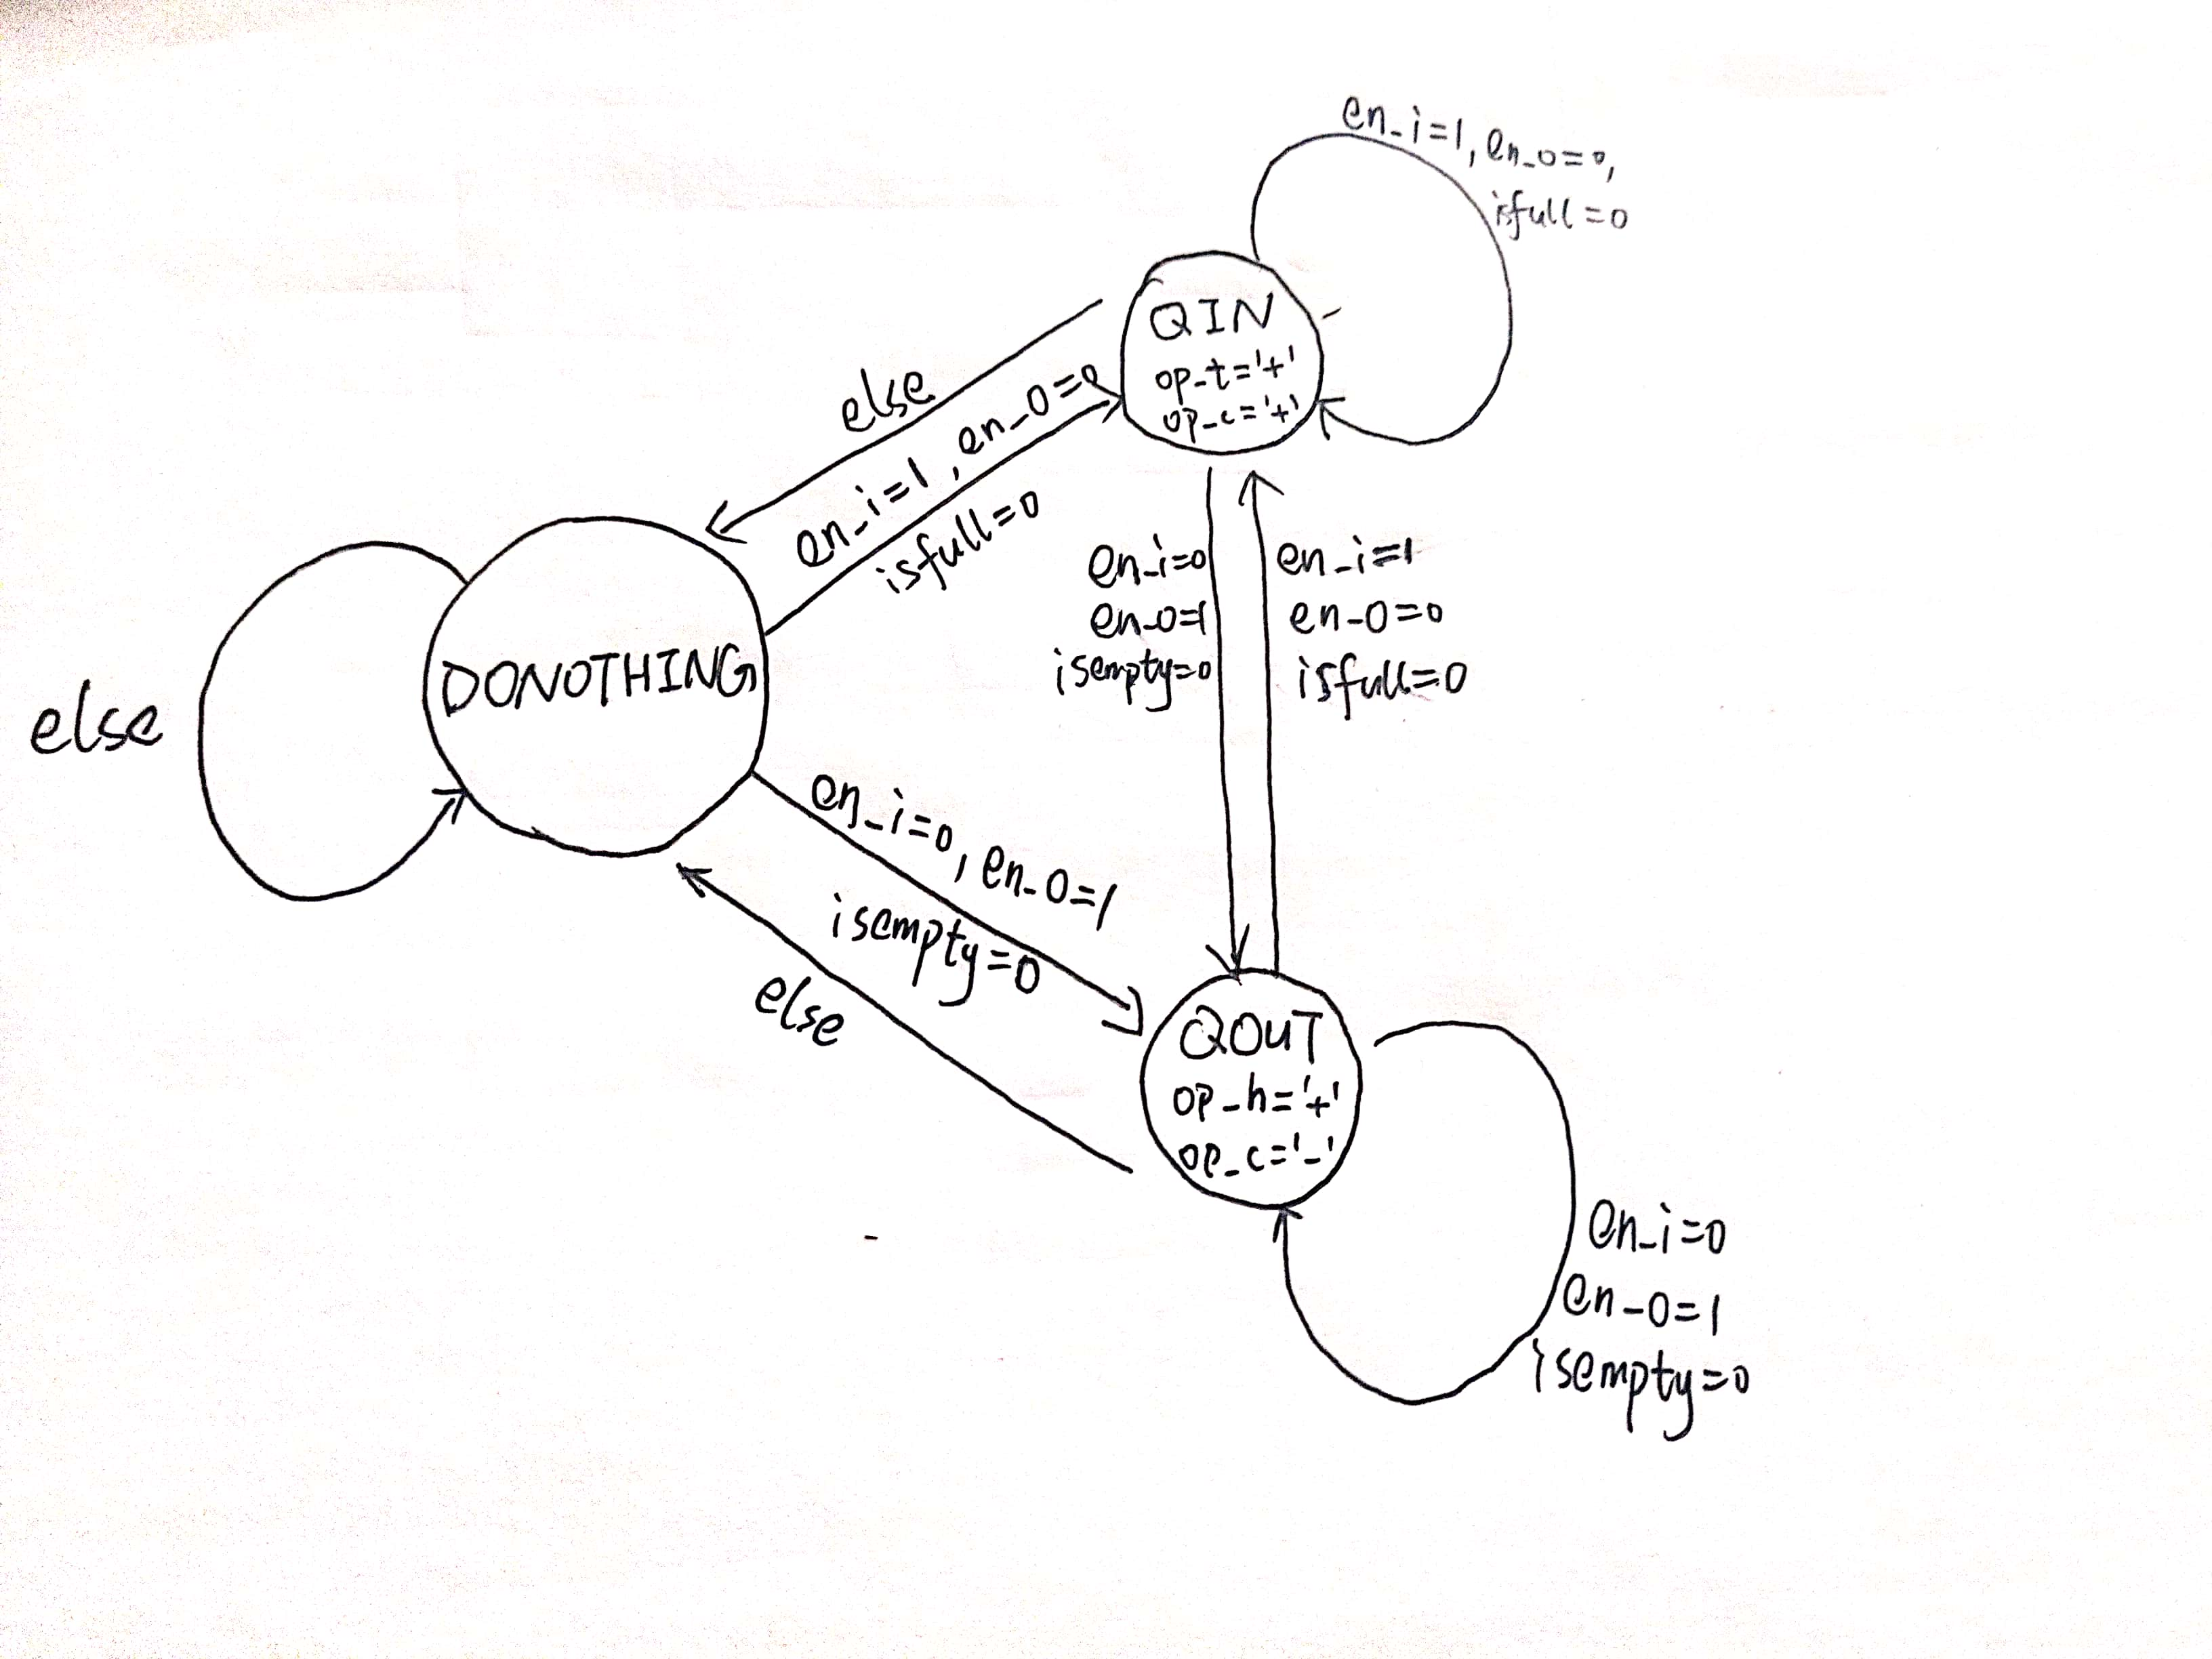 en_i=1, en_o=0,
isfull=0
QIN
op_t='+'
op_c='+'
else
en_i=1, en_o=0
isfull=0
en_i=0
en_o=1
isempty=0
en_i=1
en_o=0
isfull=0
DONOTHING
else
en_i=0, en_o=1
isempty=0
else
QOUT
op_h='+'
op_c='-'
en_i=0
en_o=1
isempty=0